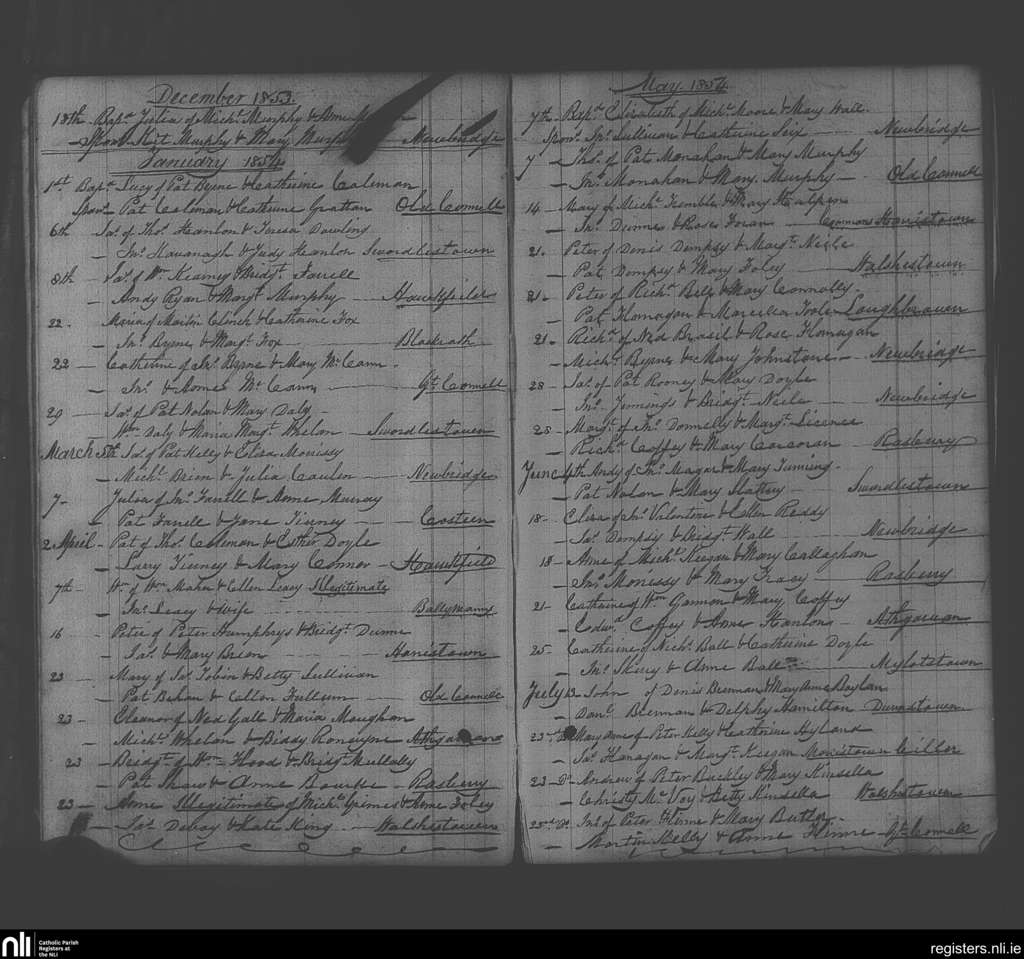 December 1853.
18th Bapd. Julia of Michl. Murphy & Anne
Spons. Kit Murphy & Mary Murphy Newbridge
January 1854
1st. Bapd. Lucy of Pat Byrne & Catherine Coleman
Spons. Pat Coleman & Catherine Grattan Old Connell
6th Jas. of Thos. Hanlon & Teresa Dowling
Jno. Kavanagh & Judy Hanlon Swordlestown
8th Jas. of Wm. Kearny & Bridgt. Farrell
Andy Ryan & Margt. Murphy Hawkfield
22. Maria of Martin Clinch & Catherine Fox
Jno. Byrne & Margt. Fox Blackrath
22 Catherine of Jno. Byrne & Mary McCann
Jno. & Agnes McCann Gt. Connell
29 Jas. of Pat Nolan & Mary Daly
Wm. Daly & Maria Margt. Whelan Swordlestown
March 5th Jas. of Pat Kelly & Eliza Morrissy
Michl. Brien & Julia Newbridge
7 Julia of Jno. Farrell & Anne Murray
Pat Farrell & Jane Tierney
2 April Pat of Thos. Coleman & Esther Doyle
Larry Tierney & Mary Connor Hawkfield
7th Wm. of Wm. Maher & Ellen Leary Illegitimate
Jno. Leary & wife Ballymanny
16 Peter of Peter Humphrys & Bridgt. Dunne
Jas. & Mary Brien Haristown
23 Mary of Jas. Tobin & Betty Sullivan
Pat Behan & Old Connell
23 Eleanor of Ned Gall & Maria Maughan
Michl. Whelan & Biddy Ronayne
23 Bridgt. of Wm. Flood & Bridgt. Mullally
Pat Shaw & Anne Bourke Rasberry
23 Anne Illegitimate of Michl. Grimes & Anne Foley
Jas. Deboy & Kate King Walshestown
May 1854
7th Bapd. Elizabeth of Michl. Moore & Mary Wall
Spons. Jno. Sullivan & Catherine Six Newbridge
7 Thos. of Pat Monahan & Mary Murphy
Jno. Monahan & Mary Murphy Old Connell
14 Mary of Michl. Kemble & Mary Halpin
Jno. Dunne & Rose Foran Commons Haristown
21. Peter of Denis Dempsy & Margt. Neile
Pat Dempsy & Mary Foley Walshestown
21 Peter of Richd. Bell & Mary Connolly
Pat Flanagan & Marcella Toole Loughbrown
21 Richd. of Ned Brasil & Rose Flanagan
Michl. Byrne & Mary Johnstone Newbridge
28 Jas. of Pat Rooney & Mary Doyle
Jno. Jennings & Bridgt. Neile Newbridge
28 Margt. of Jno. Donnelly & Margt.
Richd. Coffey & Mary Corcoran Rasberry
June 4th Andy of Jno. Magar & Mary Tunning
Pat Nolan & Mary Slattery Swordlestown
18 Eliza of Valentine & Ellen Reddy
Jas. Dempsy & Bridgt. Wall Newbridge
18 Anne of Michl. Keegan & Mary Callaghan
Jno. Morissy & Mary Tracy Rasberry
21 Catherine of Wm. Gannon & Mary Coffey
Edwd. Coffey & Anne Hanlon Athgarvan
25 Catherine of Michl. Ball & Catherine Doyle
Jno. Skiry & Anne Ball Mylotstown
July 13 John of Denis Brennan & Mary Anne Boylan
Danl. Brennan & Delphy Hamilton
23rd Do Mary Anne of Peter Kelly & Catherine Hyland
Jas. Flanagan & Margt. Keegan
23 Do Andrew of Peter Buckley & Mary Kinsella
Christy McVoy & Betty Kinsella Walshestown
25th Do Jno. of Peter Hinne & Mary Butler
Martin Kelly & Anne Hinne Gt. Connell
nli
Catholic Parish
Registers at
the NLI
registers.nli.ie